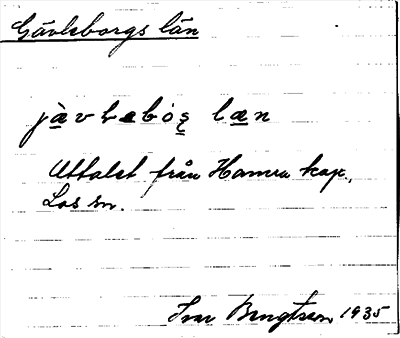 Gävleborgs län
jàvləbós̨ læn
Uttalet från Hamra kap.,
Los sn.
Ivar Bengtsson 1935